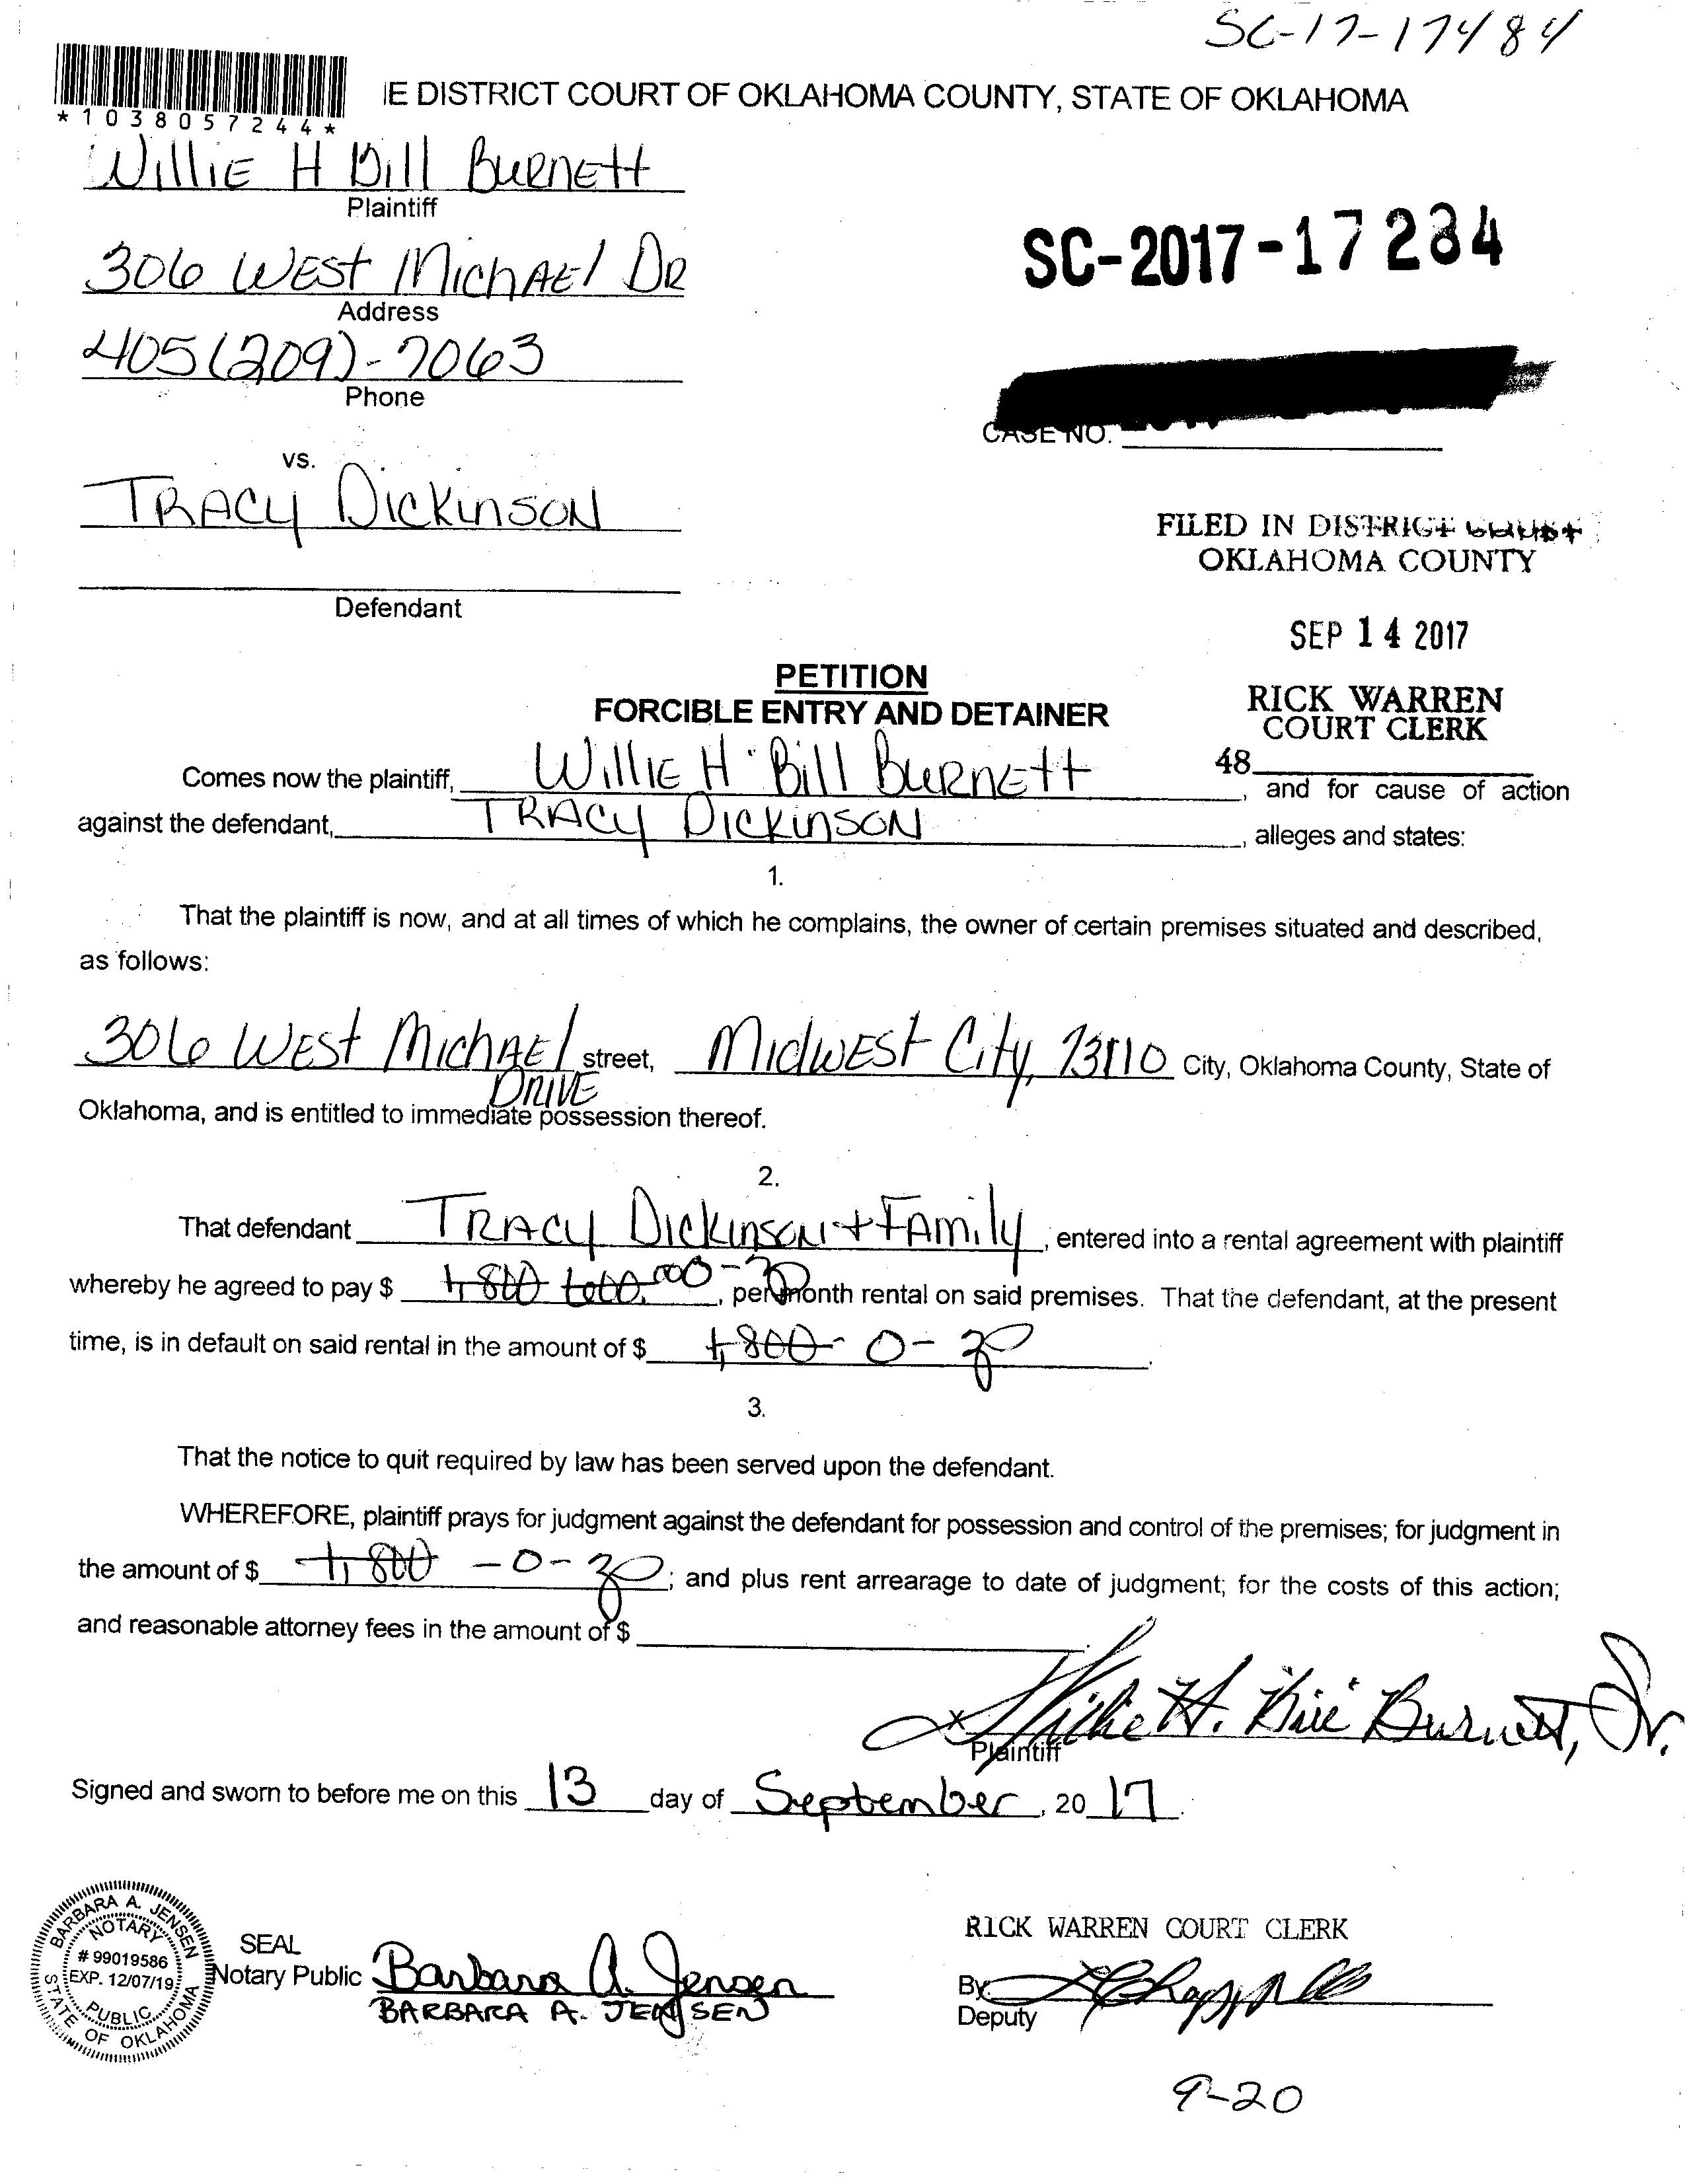 SC-17-17484
*1038057244*
IE DISTRICT COURT OF OKLAHOMA COUNTY, STATE OF OKLAHOMA
Willie H Bill Burnett
Plaintiff
306 West Michael Dr
Address
SC-2017-17284
405(209)-7063
Phone
CASE NO.
vs.
Tracy Dickinson
Defendant
FILED IN DISTRICT COURT
OKLAHOMA COUNTY
SEP 14 2017
RICK WARREN
COURT CLERK
48
PETITION
FORCIBLE ENTRY AND DETAINER
Comes now the plaintiff, Willie H Bill Burnett, and for cause of action
against the defendant, Tracy Dickinson, alleges and states:
1.
That the plaintiff is now, and at all times of which he complains, the owner of certain premises situated and described,
as follows:
306 West Michael Drive street, Midwest City, 73110 City, Oklahoma County, State of
Oklahoma, and is entitled to immediate possession thereof.
2.
That defendant Tracy Dickinson + Family, entered into a rental agreement with plaintiff
whereby he agreed to pay $ 1,800, per month rental on said premises. That the defendant, at the present
time, is in default on said rental in the amount of $ 1,800 - 0 -
3.
That the notice to quit required by law has been served upon the defendant.
WHEREFORE, plaintiff prays for judgment against the defendant for possession and control of the premises; for judgment in
the amount of $ 1,800 - 0 - ; and plus rent arrearage to date of judgment; for the costs of this action;
and reasonable attorney fees in the amount of $
x Willie H. Bill Burnett, Sr.
Plaintiff
Signed and sworn to before me on this 13 day of September, 2017.
BARBARA A. JENSEN
NOTARY
# 99019586
EXP. 12/07/19
PUBLIC
STATE OF OKLAHOMA
SEAL
Notary Public Barbara A. Jensen
BARBARA A. JENSEN
RICK WARREN COURT CLERK
By
Deputy
9-20